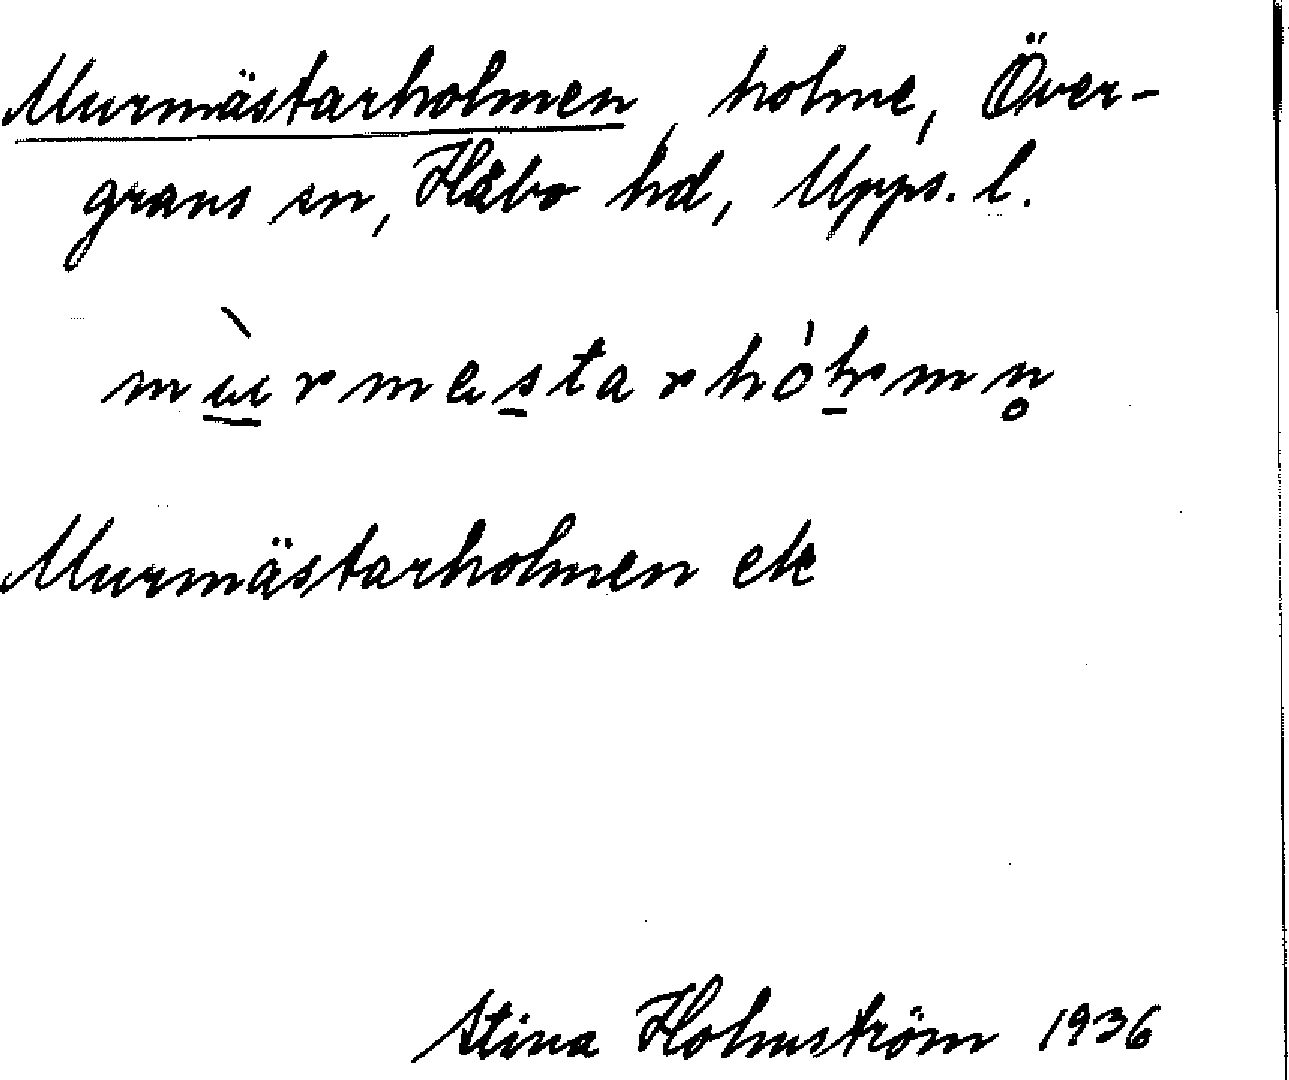 Murmästarholmen, holme, Över-
grans sn, Håbo hd, Upps. l.
Murmästarholmen ek
Stina Holmström 1936